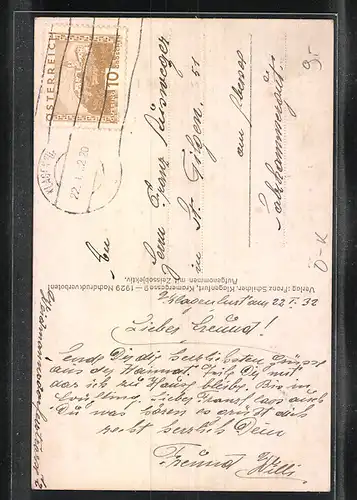 ÖSTERREICH
10
GROSCHEN
KLAGENF
22. I. 32. 20
9.-
An
Herrn Franz
in St. Gilgen. 51
am Abersee
Salzkammergut.
O-K
Verlag: Franz Schilcher, Klagenfurt, Kramergasse 9 — 1929 Nachdruck verboten!
Aufgenommen mit Zeissobjektiv.
Klagenfurt am 22 I. 32
Lieber Freund!
Sende Dir die herzlichsten Grüsse
aus der Heimat.
das ich zu Hause bleibe. Bis im
Frühling. Lieber Franz lass auch
Du was hören es grüsst dich
recht herzlich Dein
Freund Willi